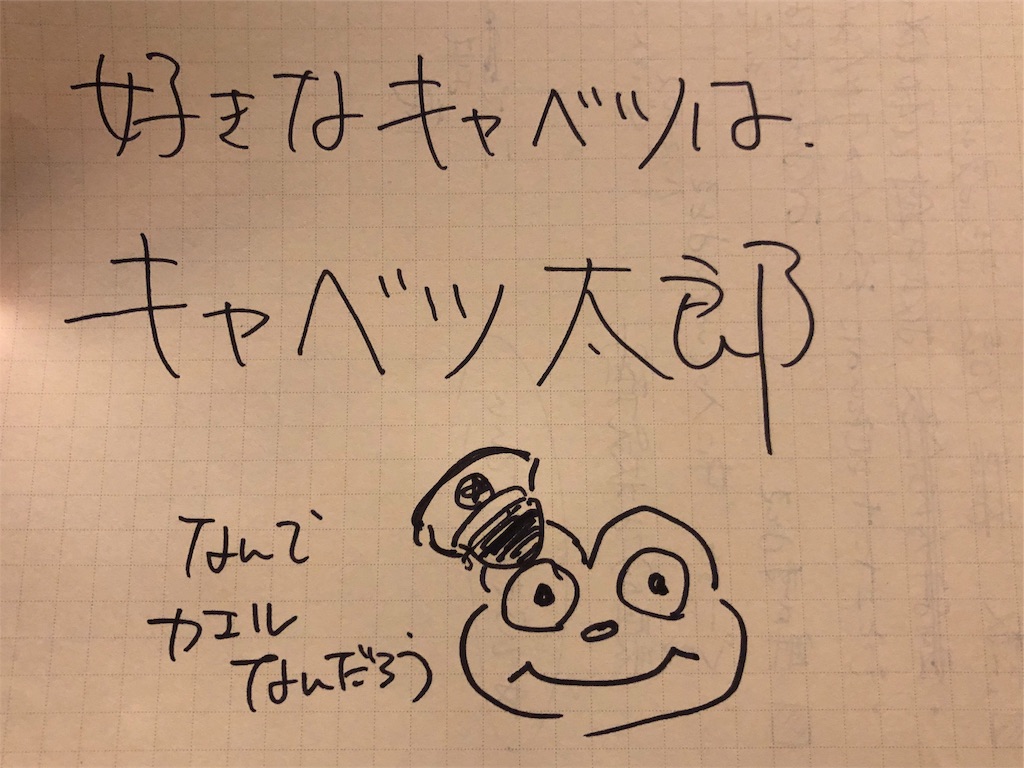 好きなキャベツは.
キャベツ太郎
なんで
カエル
なんだろう